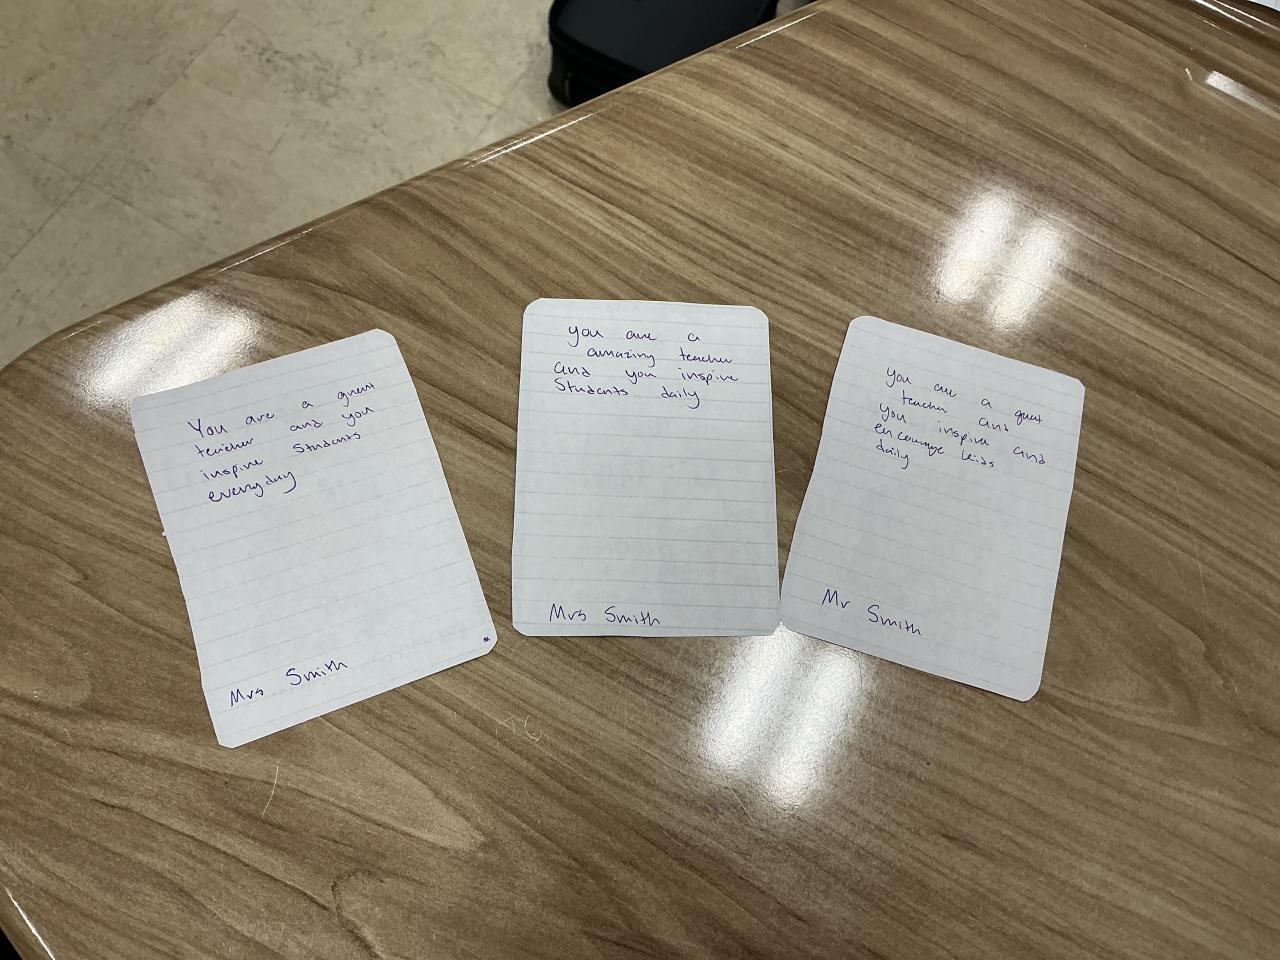 You are a great
teacher and you
inspire students
everyday
Mrs Smith
you are a
amazing teacher
and you inspire
Students daily
Mrs Smith
you are a great
teacher and
you inspire and
encourage kids
daily
Mr Smith